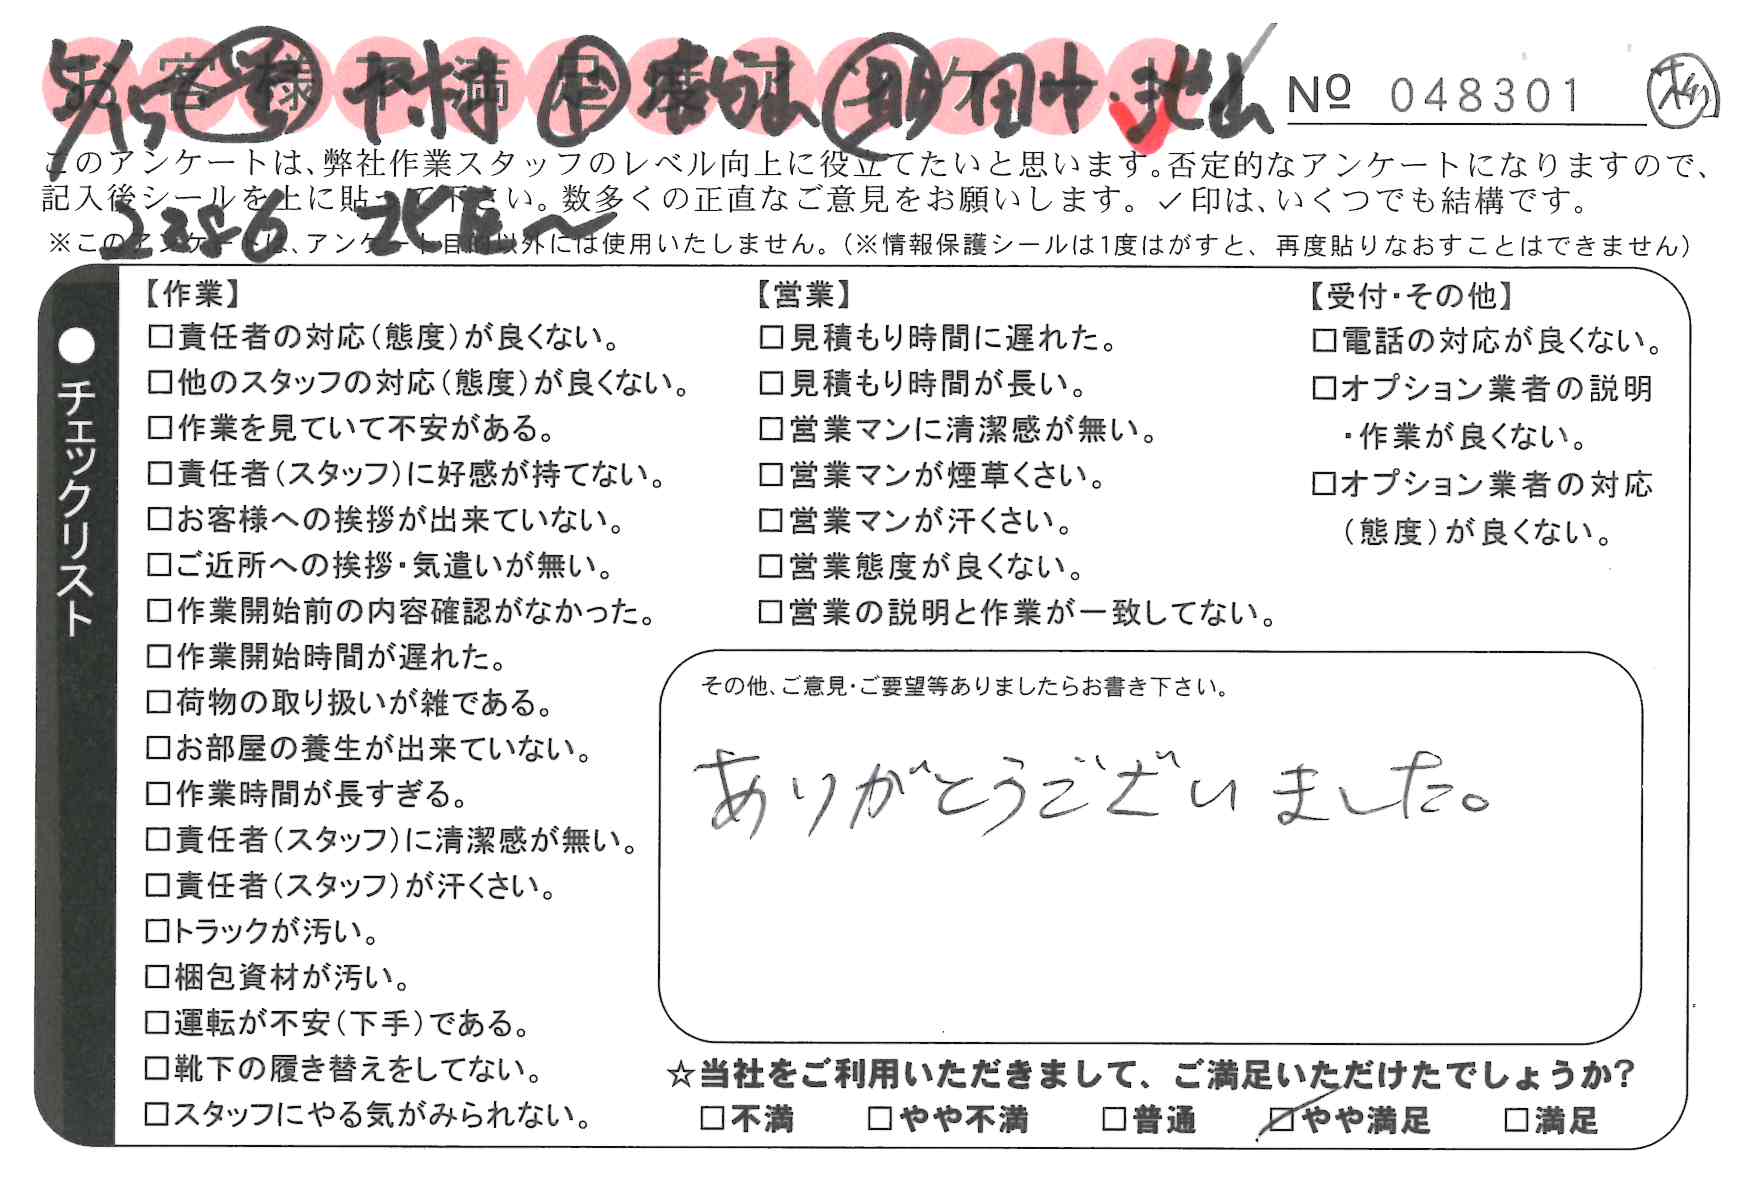 お客様不満足度アンケート
№ 048301
このアンケートは、弊社作業スタッフのレベル向上に役立てたいと思います。否定的なアンケートになりますので、
記入後シールを上に貼って下さい。数多くの正直なご意見をお願いします。✓印は、いくつでも結構です。
※このアンケートは、アンケート目的以外には使用いたしません。（※情報保護シールは1度はがすと、再度貼りなおすことはできません）
●チェックリスト
【作業】
□責任者の対応（態度）が良くない。
□他のスタッフの対応（態度）が良くない。
□作業を見ていて不安がある。
□責任者（スタッフ）に好感が持てない。
□お客様への挨拶が出来ていない。
□ご近所への挨拶・気遣いが無い。
□作業開始前の内容確認がなかった。
□作業開始時間が遅れた。
□荷物の取り扱いが雑である。
□お部屋の養生が出来ていない。
□作業時間が長すぎる。
□責任者（スタッフ）に清潔感が無い。
□責任者（スタッフ）が汗くさい。
□トラックが汚い。
□梱包資材が汚い。
□運転が不安（下手）である。
□靴下の履き替えをしてない。
□スタッフにやる気がみられない。
【営業】
□見積もり時間に遅れた。
□見積もり時間が長い。
□営業マンに清潔感が無い。
□営業マンが煙草くさい。
□営業マンが汗くさい。
□営業態度が良くない。
□営業の説明と作業が一致してない。
【受付・その他】
□電話の対応が良くない。
□オプション業者の説明
・作業が良くない。
□オプション業者の対応
（態度）が良くない。
その他、ご意見・ご要望等ありましたらお書き下さい。
ありがとうございました。
☆当社をご利用いただきまして、ご満足いただけたでしょうか?
□不満 □やや不満 □普通 □やや満足 □満足